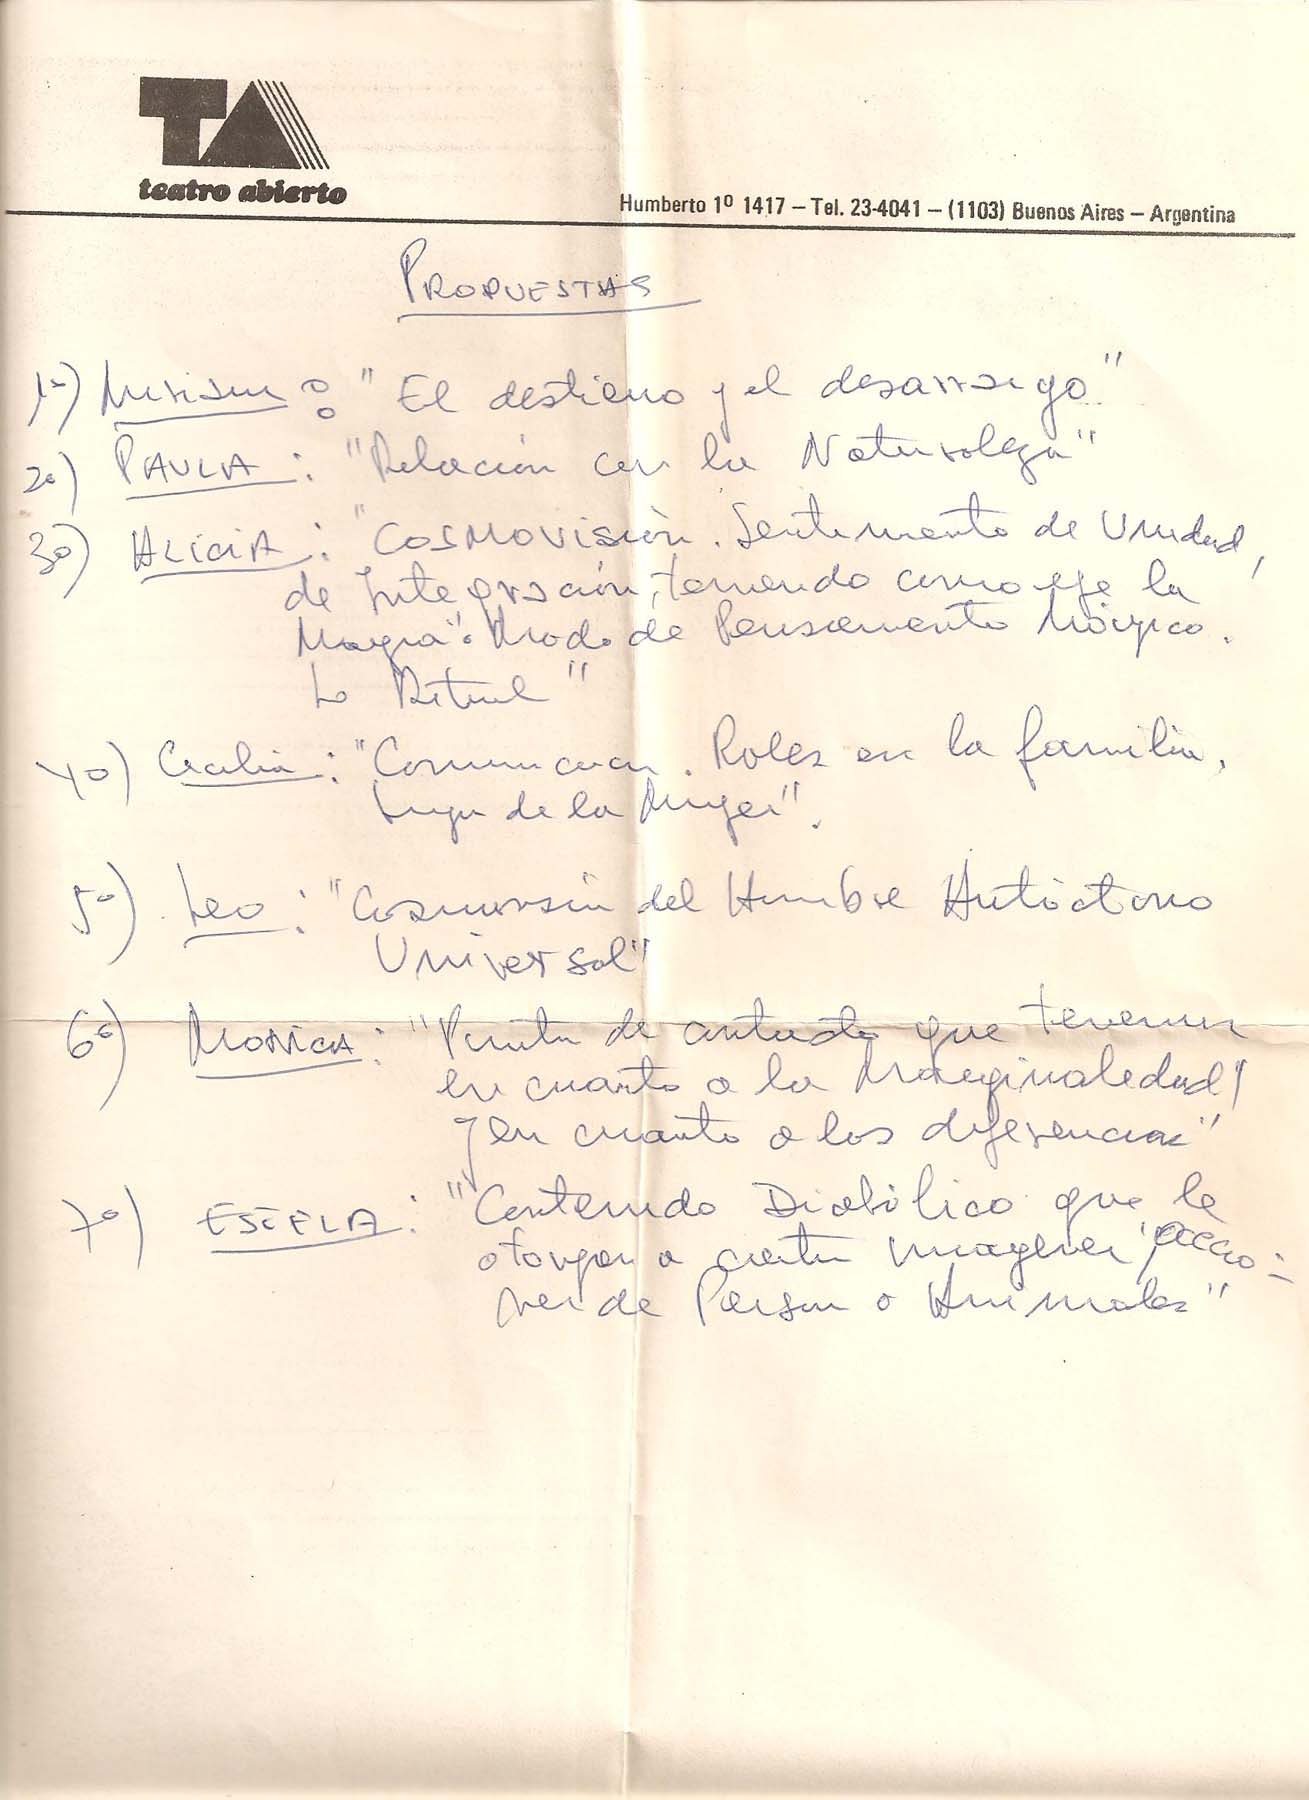 TA
teatro abierto
Humberto 1º 1417 – Tel. 23-4041 – (1103) Buenos Aires – Argentina
PROPUESTAS
1º) Miriam: "El destierro y el desarraigo"
2º) PAULA: "Relación con la Naturaleza"
3º) ALICIA: "COSMOVISIÓN. Sentimiento de Unidad,
de Integración, teniendo como eje la
Magia". Modo de Pensamiento Mágico.
Lo Ritual"
4º) Cecilia: "Comunicación. Roles en la familia.
Lugar de la Mujer".
5º) Leo: "Cosmovisión del Hombre Autóctono
Universal"
6º) MONICA: "Puntos de contacto que tenemos
en cuanto a la Marginalidad
y en cuanto a las diferencias"
7º) ESTELA: "Contenido Diabólico que le
otorgan a ciertas imágenes, accio-
nes de Personas o Animales"